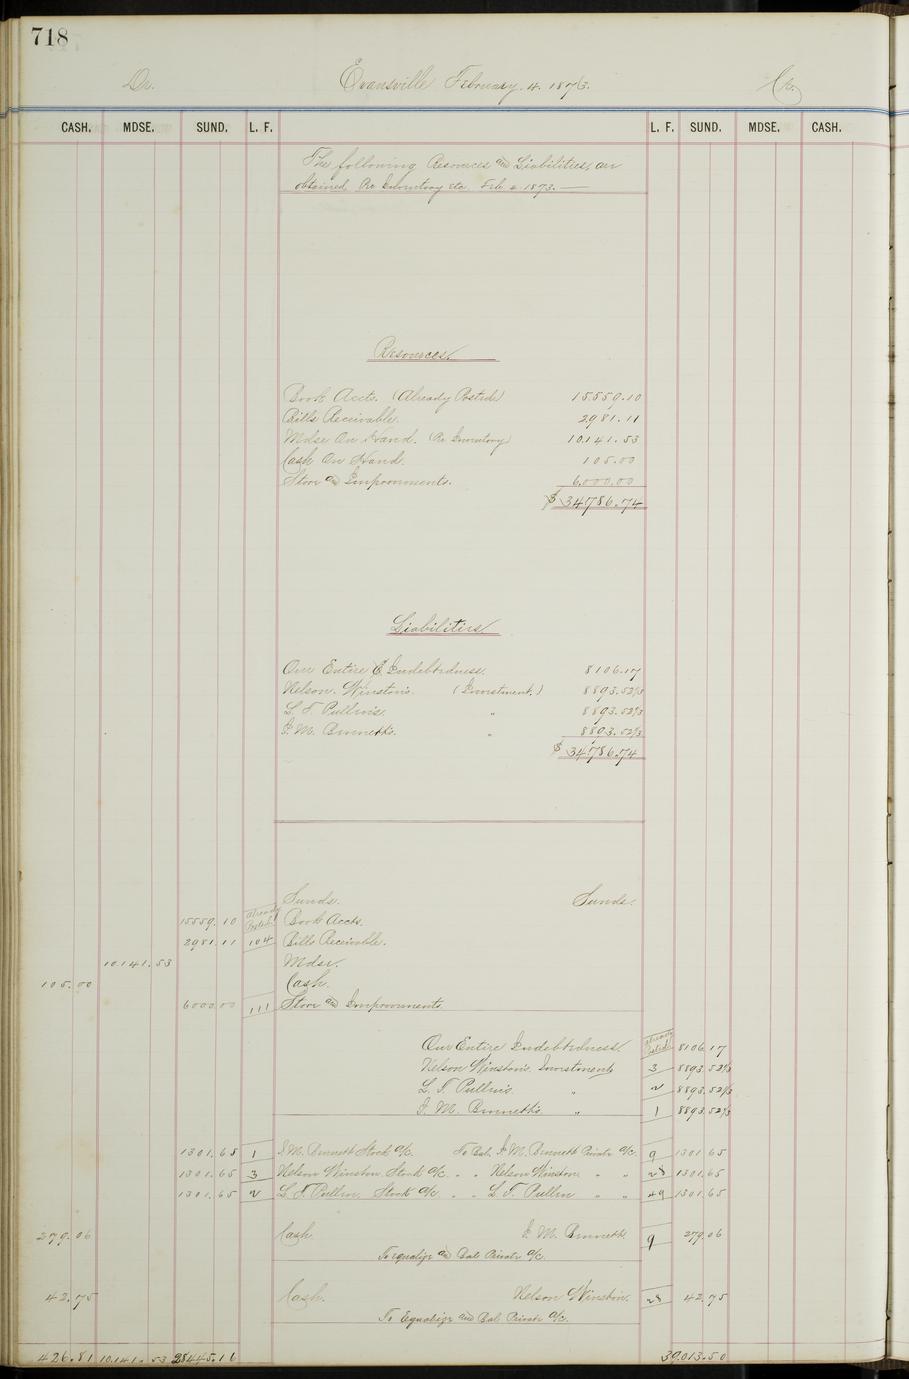 718
Dr. Evansville February. 4. 1873. Cr.
CASH. MDSE. SUND. L. F. L. F. SUND. MDSE. CASH.
The following Resources and Liabilities, as
obtained, Pr Inventory etc. Feb 4 1873. —
Resources.
Book Accts. (Already Posted) 15559.10
Bills Receivable. 2981.11
Mdse On Hand. (Pr Inventory) 10.141.53
Cash On Hand. 105.00
Store and Improvments. 6.000.00
$ 34786.74
Liabilities.
Our Entire Indebtedness. 8106.17
Nelson. Winston's. (Investment.) 8893.52⅓
L. T. Pullin's. " 8893.52⅓
J. M. Bennett's. " 8893.52⅓
$ 34786.74
Sunds. Sunds.
15559.10 Already Posted. Book Accts.
2981.11 104 Bills Receivable.
10.141.53 Mdse.
105.00 Cash.
6000.00 111 Store and Improvments.
Our Entire Indebtedness. Already Posted. 8106.17
Nelson Winston's Investment 3 8893.52⅓
L. T. Pullin's. " 2 8893.52⅓
J. M. Bennett's. " 1 8893.52⅓
1301.65 1 J. M. Bennett Stock a/c. To Bal. J. M. Bennett Private a/c. 9 1301.65
1301.65 3 Nelson Winston Stock a/c. " " Nelson Winston " " 28 1301.65
1301.65 2 L. T. Pullin, Stock a/c " " L. T. Pullin " " 49 1301.65
279.06 Cash. J. M. Bennett. 9 279.06
To Equalize and Bal. Private a/c.
42.75 Cash. Nelson Winston. 28 42.75
To Equalize and Bal. Private a/c.
426.81 10.141.53 28445.16 39.013.50